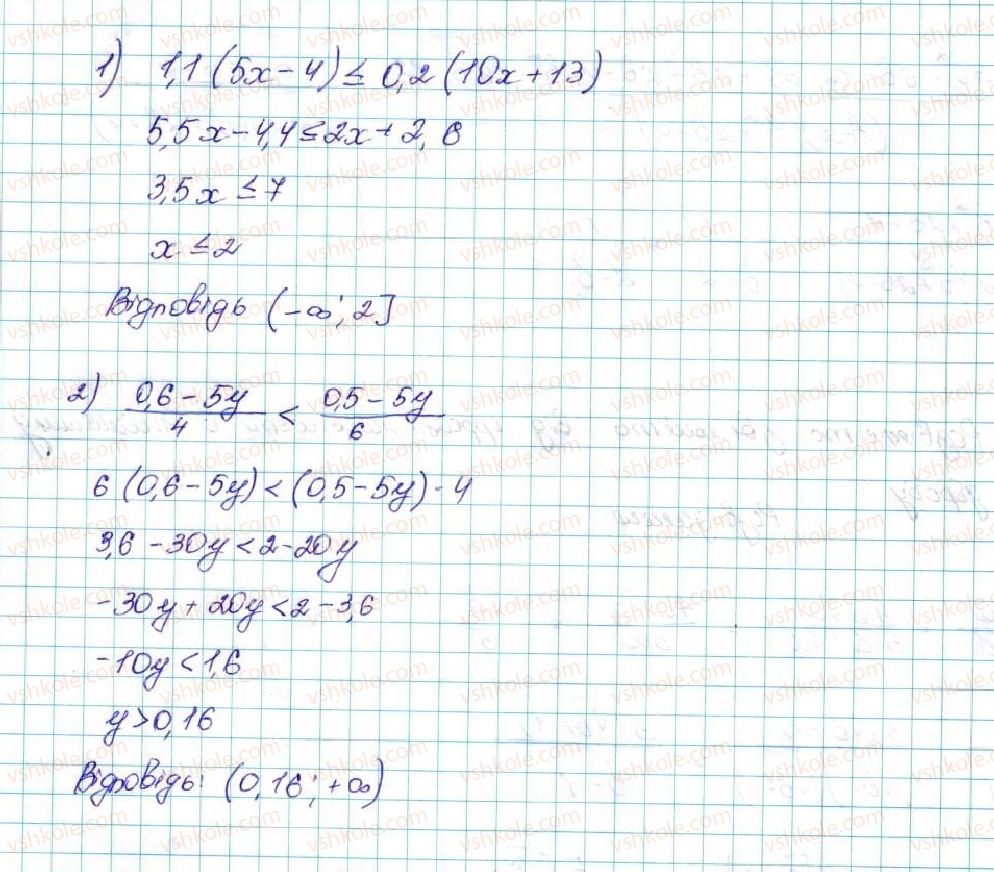 1) 1,1 (5x - 4) ≤ 0,2 (10x + 13)
5,5x - 4,4 ≤ 2x + 2,6
3,5x ≤ 7
x ≤ 2
Відповідь (-∞; 2]
2) (0,6 - 5y)/4 < (0,5 - 5y)/6
6 (0,6 - 5y) < (0,5 - 5y) · 4
3,6 - 30y < 2 - 20y
-30y + 20y < 2 - 3,6
-10y < 1,6
y > 0,16
Відповідь: (0,16; +∞)
vshkole.com